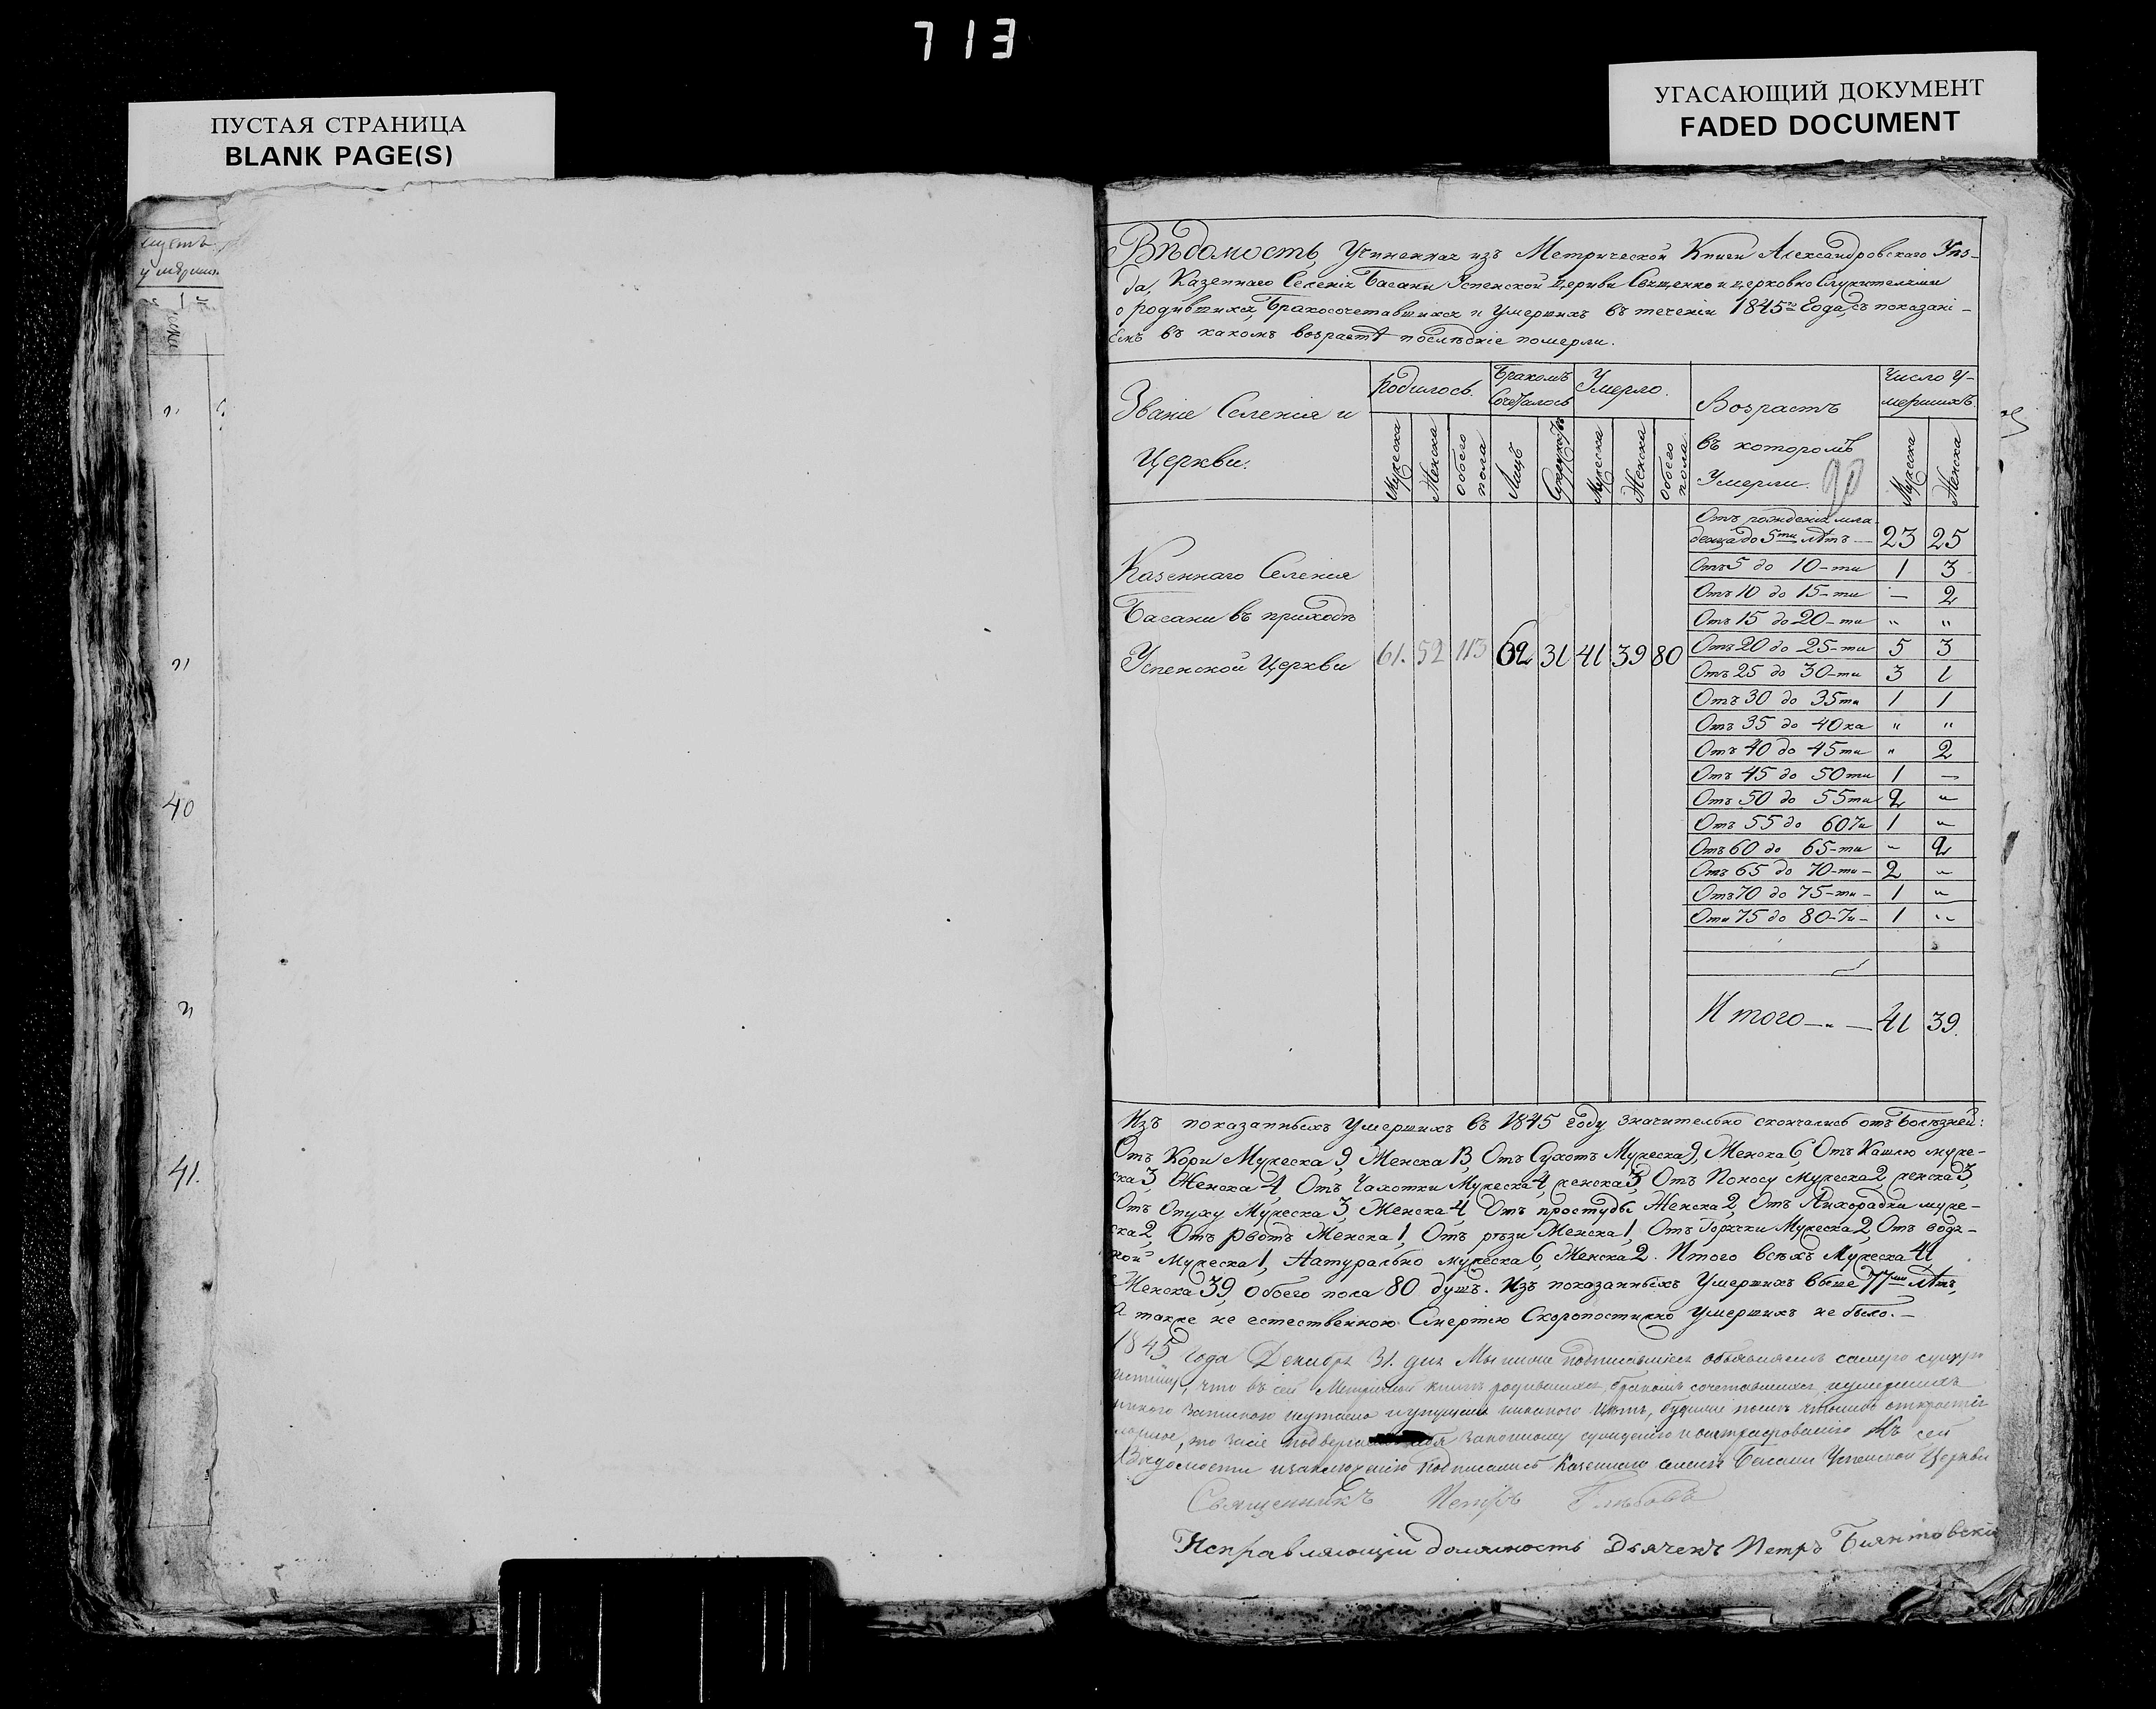 713
ПУСТАЯ СТРАНИЦА
BLANK PAGE(S)
УГАСАЮЩИЙ ДОКУМЕНТ
FADED DOCUMENT
40
41.
Вѣдомость, Учиненная изъ Метрической Книги Александровскаго Уѣз-
да, Казеннаго Селенія Басани Успенской Церкви Священно и церковно Служителями
о родившихся, Бракосочетавшихся и Умершихъ въ теченіи 1845го Года, съ показані-
емъ въ какомъ возрастѣ послѣдніе померли.
Званіе Селенія и Церкви.
Родилось.
Бракомъ Сочеталось
Умерло.
Возрастъ въ которомъ Умерли.
90
Число У-
мершихъ
Мужеска Женска Обоего пола Лицъ Супружествъ Мужеска Женска Обоего пола Мужеска Женска
Казеннаго Селенія
Басани въ приходѣ
Успенской Церкви 61. 52 113 62 31 41 39 80
Отъ рожденія мла-
денца до 5ти лѣтъ — 23 25
Отъ 5 до 10-ти 1 3
Отъ 10 до 15-ти — 2
Отъ 15 до 20-ти " "
Отъ 20 до 25-ти 5 3
Отъ 25 до 30-ти 3 1
Отъ 30 до 35ти 1 1
Отъ 35 до 40ка " "
Отъ 40 до 45ти " 2
Отъ 45 до 50ти 1 —
Отъ 50 до 55ти 2 "
Отъ 55 до 60ти 1 "
Отъ 60 до 65-ти " 2
Отъ 65 до 70-ти- 2 "
Отъ 70 до 75-ти- 1 "
Отъ 75 до 80-ти- 1 "
Итого —"— 41 39.
Изъ показанныхъ Умершихъ въ 1845 Году значительно скончались отъ Болѣзней:
Отъ Кори Мужеска 9, Женска 13, Отъ Сухотъ Мужеска 9, Женска 6, Отъ Кашлю муже-
ска 3, Женска 4, Отъ Чахотки Мужеска 4, женска 3, Отъ Поносу мужеска 2, женска 3,
Отъ Опуху Мужеска 3, Женска 4, Отъ простуды Женска 2, Отъ Лихорадки муже-
ска 2, Отъ Рвотъ Женска 1, Отъ рѣзи Женска 1, Отъ Горячки Мужеска 2, Отъ водя-
ной Мужеска 1, Натурально мужеска 6, Женска 2. Итого всѣхъ Мужеска 41
Женска 39, Обоего пола 80 душъ. Изъ показанныхъ Умершихъ выше 77ми Лѣтъ,
а также не естественною Смертію Скоропостижно Умершихъ не было.—
1845 года Декабря 31. дня Мы ниже подписавшіеся объявляемъ самую сущую
истину, что въ сей Метричной книгѣ родившихся, бракомъ сочетавшихся и умершихъ
запискою и упущено никакого нѣтъ,
то за сіе законному сужденію и штрафованію Къ сей
Вѣдомости подписались Казеннаго селенія Басани Успенской Церкви
Священникъ Петръ
Исправляющій должность Дьячекъ Петръ